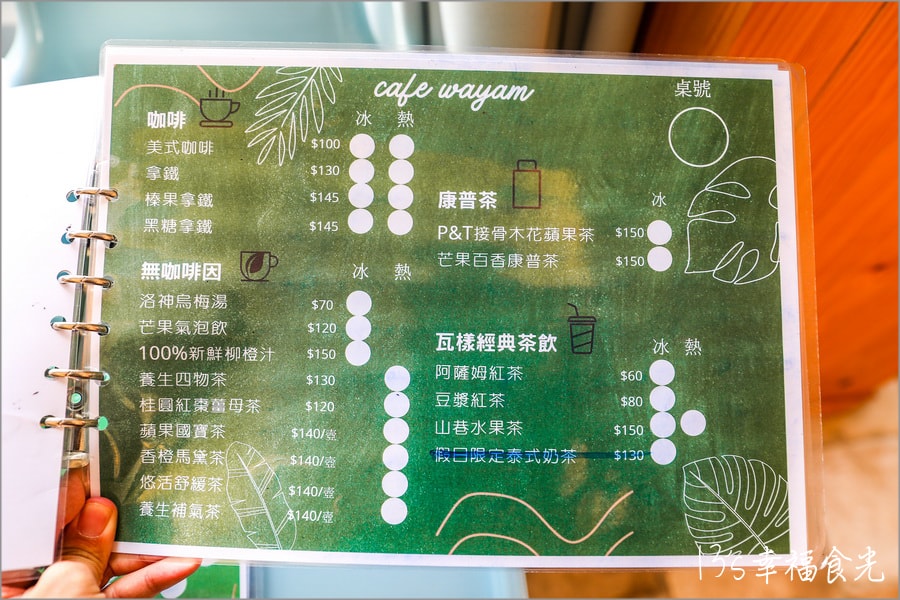 cafe wayam
桌號
咖啡 冰 熱
美式咖啡 $100
拿鐵 $130
榛果拿鐵 $145
黑糖拿鐵 $145
無咖啡因 冰 熱
洛神烏梅湯 $70
芒果氣泡飲 $120
100%新鮮柳橙汁 $150
養生四物茶 $130
桂圓紅棗薑母茶 $120
蘋果國寶茶 $140/壺
香橙馬黛茶 $140/壺
悠活舒緩茶 $140/壺
養生補氣茶 $140/壺
康普茶 冰
P&T接骨木花蘋果茶 $150
芒果百香康普茶 $150
瓦樣經典茶飲 冰 熱
阿薩姆紅茶 $60
豆漿紅茶 $80
山巷水果茶 $150
假日限定泰式奶茶 $130
135幸福食光